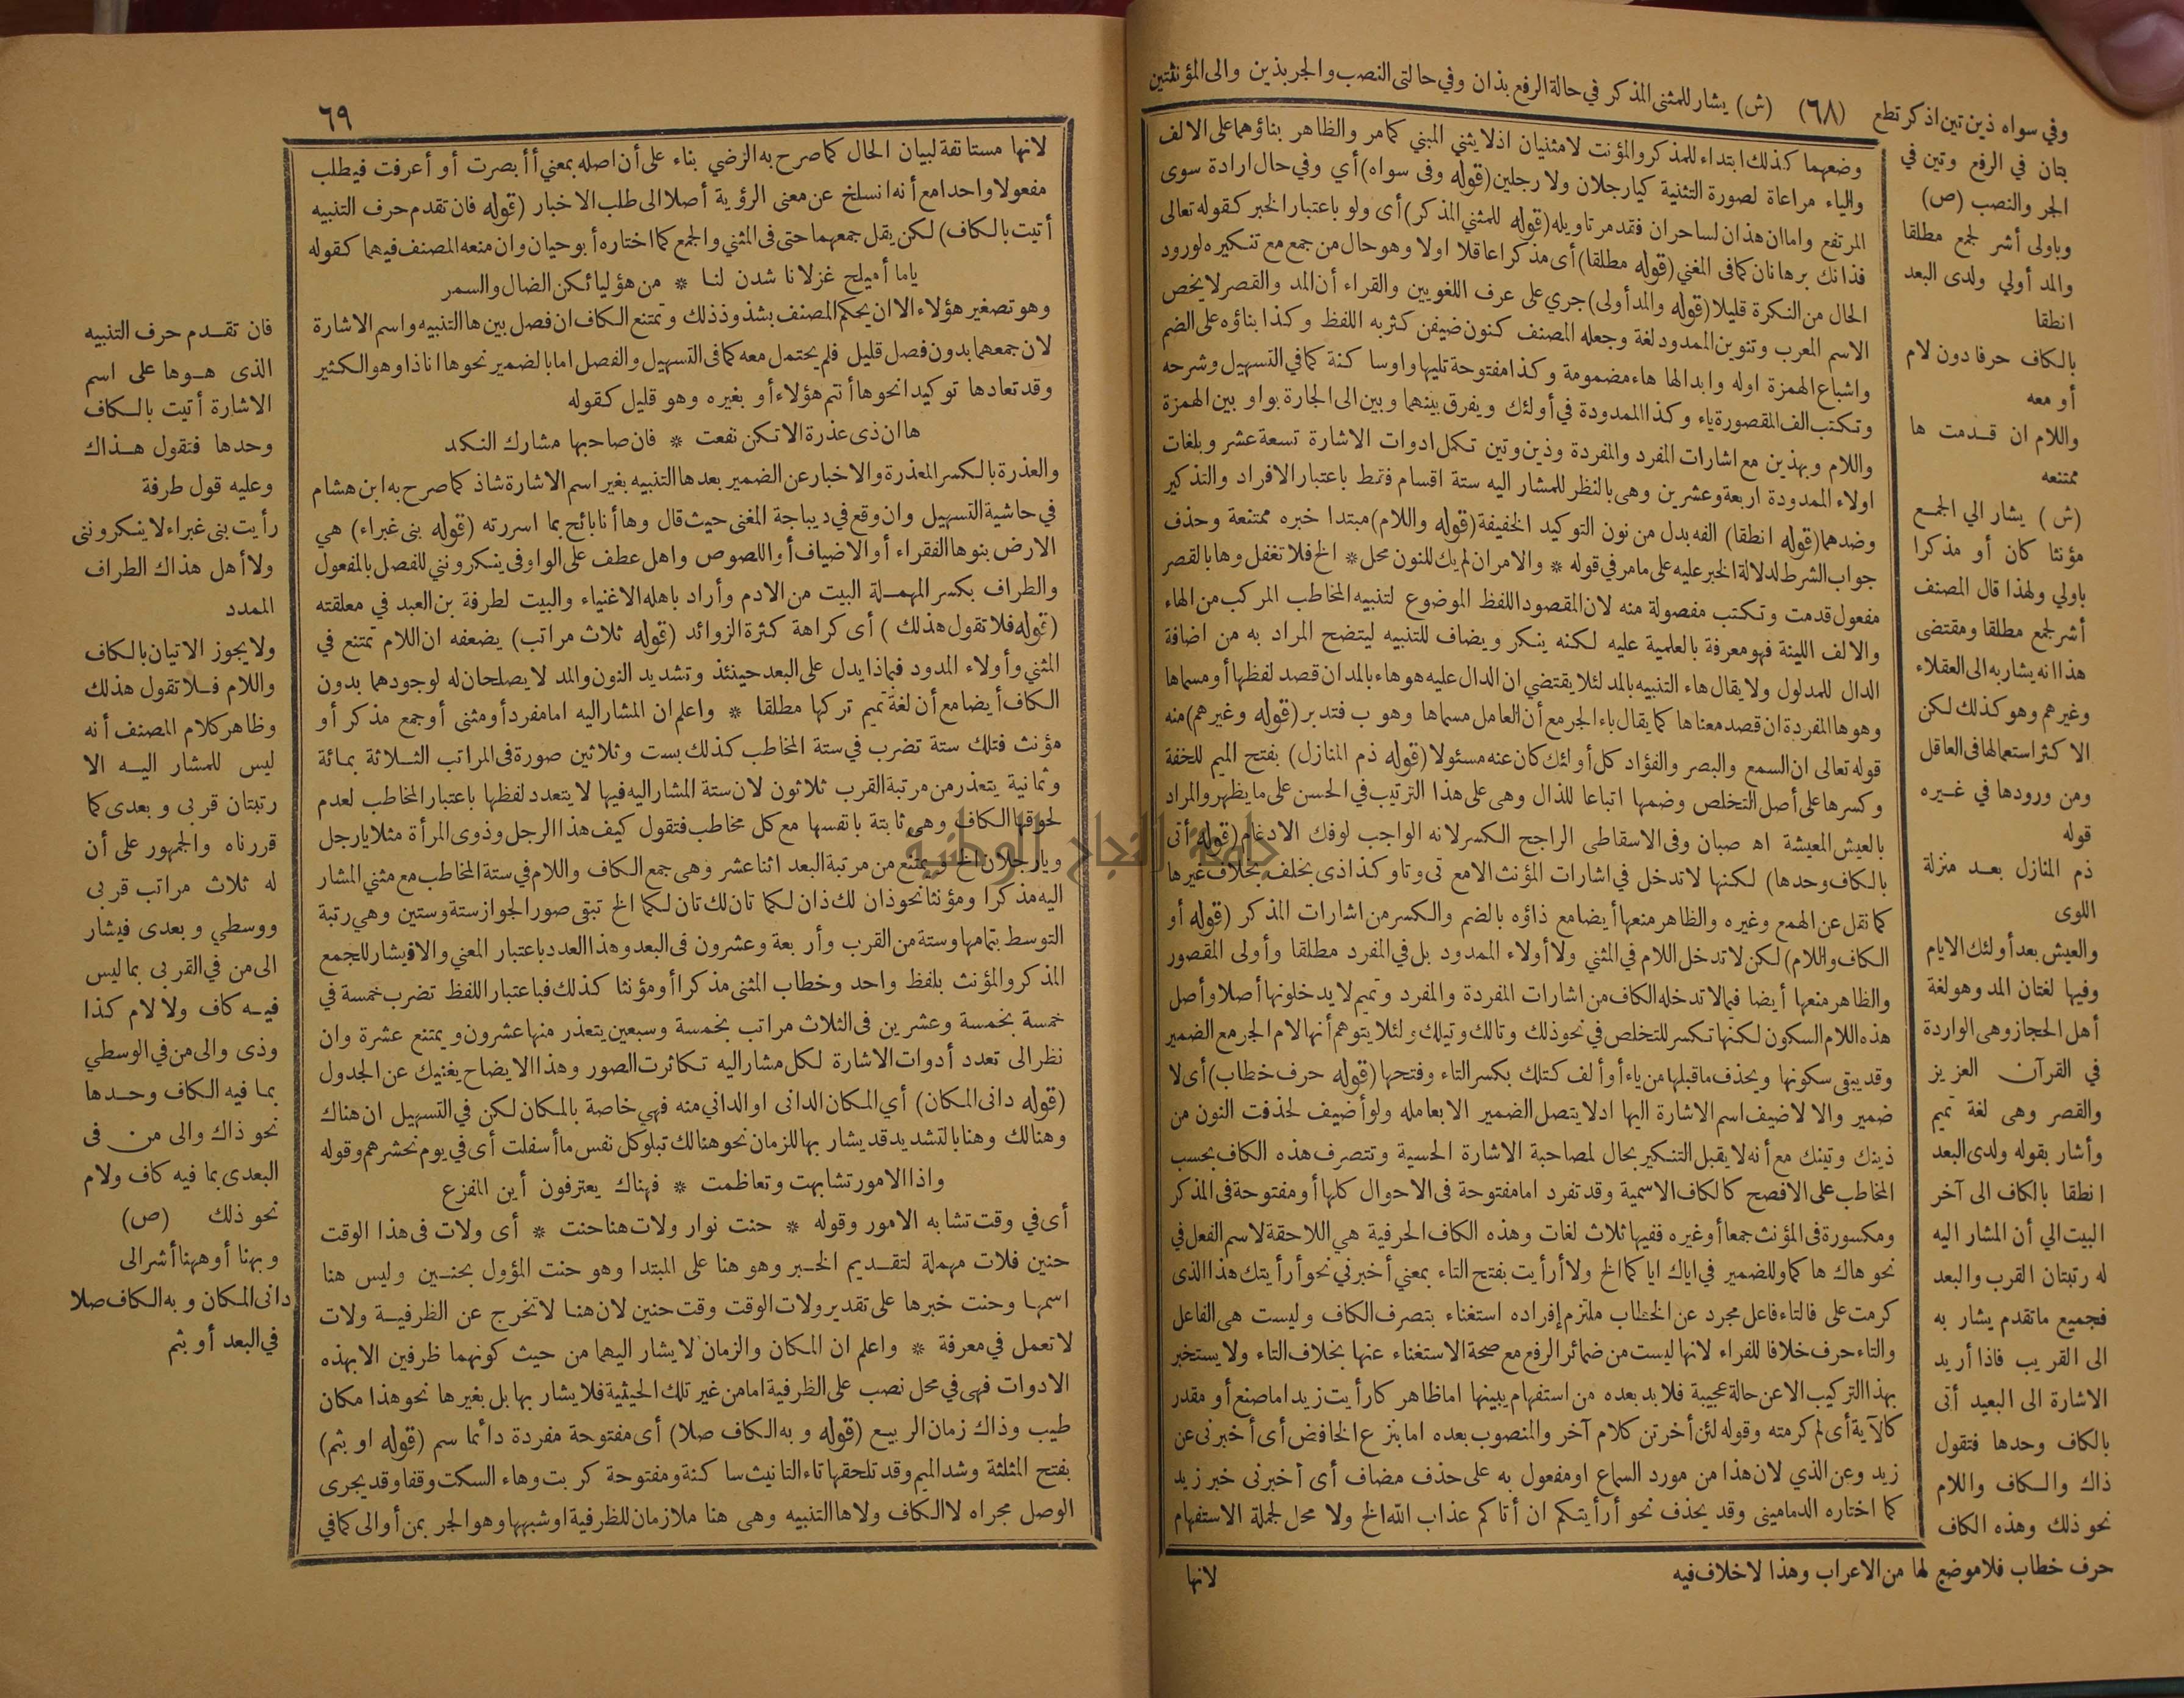 وفي سواه ذين تين اذكر تطع (٦٨) (ش) يشار للمثنى المذكر في حالة الرفع بذان وفي حالتى النصب والجر بذين والى المؤنثتين
بتان في الرفع وتين في
الجر والنصب (ص)
وباولى أشر لجمع مطلقا
والمد أولي ولدى البعد
انطقا
بالكاف حرفا دون لام
أو معه
واللام ان قـدمت ها
ممتنعه
(ش) يشار الي الجمع
مؤنثا كان أو مذكرا
باولي ولهذا قال المصنف
أشر لجمع مطلقا ومقتضى
هذا انه يشار به الى العقلاء
وغيرهم وهو كذلك لكن
الاكثر استعمالها فى العاقل
ومن ورودها في غـيره
قوله
ذم المنازل بعـد منزلة
اللوى
والعيش بعد أولئك الايام
وفيها لغتان المد وهو لغة
أهل الحجاز وهى الواردة
في القرآن العزيز
والقصر وهى لغة تميم
وأشار بقوله ولدى البعد
انطقا بالكاف الى آخر
البيت الي أن المشار اليه
له رتبتان القرب والبعد
فجميع ماتقدم يشار به
الى القريب فاذا أريد
الاشارة الى البعيد أتى
بالكاف وحدها فتقول
ذاك والـكاف واللام
نحو ذلك وهذه الكاف
حرف خطاب فلا موضع لها من الاعراب وهذا لاخلاف فيه
وضعهما كذلك ابتداء للمذكر والمؤنت لا مثنيان اذلا يثني المبني كمامر والظاهر بناؤهما على الالف
والياء مراعاة لصورة التثنية كيارجلان ولا رجلين (قوله وفى سواه) أي وفي حال ارادة سوى
المرتفع واما ان هذان لساحران فقد مر تاويله (قوله للمثني المذكر) أى ولو باعتبار الخبر كقوله تعالى
فذانك برهانان كمافى المغني (قوله مطلقا) أى مذكرا عاقلا اولا وهو حال من جمع مع تنكيره لورود
الحال من النكرة قليلا (قوله والمد أولى) جري على عرف اللغويين والقراء أن المد والقصر لايخص
الاسم المعرب وتنوين الممدود لغة وجعله المصنف كنون ضيفن كثر به اللفظ وكذا بناؤه على الضم
واشباع الهمزة اوله وابدالها هاء مضمومة وكذا مفتوحة تليها واوسا كنة كمافي التسهيل وشرحه
وتكتب الف المقصورة ياء وكذا الممدودة في أولئك ويفرق بينهما وبين الى الجارة بواو بين الهمزة
واللام وبهذين مع اشارات المفرد والمفردة وذين وتين تكمل ادوات الاشارة تسعة عشر وبلغات
اولاء الممدودة اربعة وعشرين وهى بالنظر للمشار اليه ستة اقسام فقط باعتبار الافراد والتذكير
وضدهما (قوله انطقا) الفه بدل من نون التوكيد الخفيفة (قوله واللام) مبتدا خبره ممتنعة وحذف
جواب الشرط لدلالة الخبر عليه على مامر في قوله * والامران لم يك للنون محل * الخ فلا تغفل وها بالقصر
مفعول قدمت وتكتب مفصولة منه لان المقصود اللفظ الموضوع لتنبيه المخاطب المركب من الهاء
والالف اللينة فهو معرفة بالعلمية عليه لكنه ينكر ويضاف للتنبيه ليتضح المراد به من اضافة
الدال للمدلول ولا يقال هاء التنبيه بالمد لئلا يقتضي ان الدال عليه هوهاء بالمد ان قصد لفظها أو مسماها
وهو ها المفردة ان قصد معناها كما يقال باء الجر مع أن العامل مسماها وهو ب فتدبر (قوله وغيرهم) منه
قوله تعالى ان السمع والبصر والفؤاد كل أولئك كان عنه مسئولا (قوله ذم المنازل) بفتح الميم للخفة
وكسرها على أصل التخلص وضمها اتباعا للذال وهى على هذا الترتيب في الحسن على ما يظهر والمراد
بالعيش المعيشة اه صبان وفى الاسقاطى الراجح الكسر لانه الواجب لوفك الادغام (قوله أتى
بالكاف وحدها) لكنها لا تدخل في اشارات المؤنث الامع تى وتا وكذا ذى بخلف بخلاف غيرها
كما نقل عن الهمع وغيره والظاهر منعها أيضا مع ذاؤه بالضم والكسر من اشارات المذكر (قوله أو
الكاف واللام) لكن لا تدخل اللام في المثني ولا أولاء الممدود بل في المفرد مطلقا وأولى المقصور
والظاهر منعها أيضا فيما لا تدخله الكاف من اشارات المفردة والمفرد وتميم لا يدخلونها أصلا وأصل
هذه اللام السكون لكنها تكسر للتخلص في نحو ذلك وتالك وتيلك ولئلا يتوهم أنها لام الجر مع الضمير
وقد يبقى سكونها ويحذف ماقبلها من ياء أو ألف كتلك بكسر التاء وفتحها (قوله حرف خطاب) أى لا
ضمير والا لاضيف اسم الاشارة اليها اذلا يتصل الضمير الا بعامله ولو أضيف لحذفت النون من
ذينك وتينك مع أنه لا يقبل التنكير بحال لمصاحبة الاشارة الحسية وتتصرف هذه الكاف بحسب
المخاطب على الافصح كالكاف الاسمية وقد تفرد امامفتوحة فى الاحوال كلها أو مفتوحة فى المذكر
ومكسورة فى المؤنث جمعا أو غيره ففيها ثلاث لغات وهذه الكاف الحرفية هي اللاحقة لاسم الفعل في
نحو هاك ها كما وللضمير في اياك ايا كما الخ ولا أرأيت بفتح التاء بمعني أخبرني نحو أرأيتك هذا الذى
كرمت على فالتاء فاعل مجرد عن الخطاب ملتزم إفراده استغناء بتصرف الكاف وليست هى الفاعل
والتاء حرف خلافا للفراء لانها ليست من ضمائر الرفع مع صحة الاستغناء عنها بخلاف التاء ولا يستخبر
بهذا التركيب الا عن حالة عجيبة فلا بد بعده من استفهام يبينها اما ظاهر كارأيت زيدا ماصنع أو مقدر
كالآية أى لم كرمته وقوله لئن أخرتن كلام آخر والمنصوب بعده اما بنزع الخافض أى أخبرنى عن
زيد وعن الذي لان هذا من مورد السماع او مفعول به على حذف مضاف أى أخبرنى خبر زيد
كما اختاره الدمامينى وقد يحذف نحو أرأيتكم ان أتاكم عذاب الله الخ ولا محل لجملة الاستفهام
لانها
٦٩
لانها مستانفة لبيان الحال كما صرح به الرضي بناء على أن اصله بمعني أأبصرت أو أعرفت فيطلب
مفعولا واحدا مع أنه انسلخ عن معنى الرؤية أصلا الى طلب الاخبار (قوله فان تقدم حرف التنبيه
أتيت بالكاف) لكن يقل جمعهما حتى فى المثني والجمع كما اختاره أبو حيان وان منعه المصنف فيهما كقوله
ياما أميلح غزلانا شدن لنـا * من هؤليائكن الضال والسمر
وهو تصغير هؤلاء الا ان يحكم المصنف بشذوذ ذلك وتمتنع الكاف ان فصل بين ها التنبيه واسم الاشارة
لان جمعهما بدون فصل قليل فلم يحتمل معه كمافى التسهيل والفصل اما بالضمير نحوها اناذا وهو الكثير
وقد تعادها توكيدا نحوها أنتم هؤلاء أو بغيره وهو قليل كقوله
ها ان ذى عذرة الا تكن نفعت * فان صاحبها مشارك النكد
والعذرة بالكسر المعذرة والاخبار عن الضمير بعدها التنبيه بغير اسم الاشارة شاذ كما صرح به ابن هشام
في حاشية التسهيل وان وقع في ديباجة المغنى حيث قال وها أنا بائح بما اسررته (قوله بنى غبراء) هي
الارض بنوها الفقراء أو الاضياف أو اللصوص واهل عطف على الواو فى ينكرونني للفصل بالمفعول
والطراف بكسر المهمـلة البيت من الادم وأراد باهله الاغنياء والبيت لطرفة بن العبد في معلقته
(قوله فلا تقول هذلك) أى كراهة كثرة الزوائد (قوله ثلاث مراتب) يضعفه ان اللام تمتنع في
المثني وأولاء المدود فماذا يدل على البعد حينئذ وتشديد النون والمد لا يصلحان له لوجودهما بدون
الكاف أيضا مع أن لغة تميم تركها مطلقا * واعلم ان المشار اليه اما مفرد أو مثنى أو جمع مذكر أو
مؤنث فتلك ستة تضرب في ستة المخاطب كذلك بست وثلاثين صورة فى المراتب الثلاثة بمائة
وثمانية يتعذر من مرتبة القرب ثلاثون لان ستة المشار اليه فيها لا يتعدد لفظها باعتبار المخاطب لعدم
لحوقها الكاف وهى ثابتة بانفسها مع كل مخاطب فتقول كيف هذا الرجل وذوى المرأة مثلا يارجل
ويارجلان الخ ويمتنع من مرتبة البعد اثنا عشر وهى جمع الكاف واللام في ستة المخاطب مع مثني المشار
اليه مذكرا ومؤنثا نحو ذان لك ذان لكما تان لك تان لكما الخ تبقى صور الجواز ستة وستين وهي رتبة
التوسط بتمامها وستة من القرب وأربعة وعشرون فى البعد وهذا العدد باعتبار المعني والا فيشار للجمع
المذكر والمؤنث بلفظ واحد وخطاب المثنى مذكرا أو مؤنثا كذلك فباعتبار اللفظ تضرب خمسة في
خمسة بخمسة وعشرين فى الثلاث مراتب بخمسة وسبعين يتعذر منها عشرون ويمتنع عشرة وان
نظر الى تعدد أدوات الاشارة لكل مشار اليه تكاثرت الصور وهذا الايضاح يغنيك عن الجدول
(قوله دانى المكان) أي المكان الدانى او الداني منه فهي خاصة بالمكان لكن في التسهيل ان هناك
وهنالك وهنا بالتشديد قد يشار بها للزمان نحو هنالك تبلو كل نفس ما أسفلت أى في يوم نحشرهم وقوله
واذا الامور تشابهت وتعاظمت * فهناك يعترفون أين المفزع
أى في وقت تشابه الامور وقوله * حنت نوار ولات هنا حنت * أى ولات فى هذا الوقت
حنين فلات مهملة لتقـديم الخـبر وهو هنا على المبتدا وهو حنت المؤول بحنـين وليس هنا
اسمها وحنت خبرها على تقدير ولات الوقت وقت حنين لان هنـا لا تخرج عن الظرفيـة ولات
لا تعمل في معرفة * واعلم ان المكان والزمان لا يشار اليهما من حيث كونهما ظرفين الا بهذه
الادوات فهى في محل نصب على الظرفية امامن غير تلك الحيثية فلا يشار بها بل بغيرها نحو هذا مكان
طيب وذاك زمان الربيع (قوله وبه الكاف صلا) أى مفتوحة مفردة دائما سم (قوله او بثم)
بفتح المثلثة وشد الميم وقد تلحقها تاء التانيث ساكنة ومفتوحة كربت وهاء السكت وقفا وقد يجرى
الوصل مجراه لا الكاف ولاها التنبيه وهى هنا ملازمان للظرفية او شبهها وهو الجر بمن أو الى كمافي
فان تقـدم حرف التنبيه
الذى هـوها على اسم
الاشارة أتيت بالـكاف
وحدها فتقول هـذاك
وعليه قول طرفة
رأيت بنى غبراء لا ينكروننى
ولا أهل هذاك الطراف
الممدد
ولا يجوز الاتيان بالكاف
واللام فـلا تقول هذلك
وظاهر كلام المصنف أنه
ليس للمشار اليـه الا
رتبتان قربى وبعدى كما
قررناه والجمهور على أن
له ثلاث مراتب قربى
ووسطي وبعدى فيشار
الى من في القربى بما ليس
فيـه كاف ولا لام كذا
وذى والى من في الوسطي
بمـا فيه الكاف وحـدها
نحو ذاك والى من فى
البعدى بما فيه كاف ولام
نحو ذلك (ص)
وبهنا أو ههنا أشر الى
دانى المكان وبه الكاف صلا
في البعد أو بثم
جامعة النجاح الوطنية